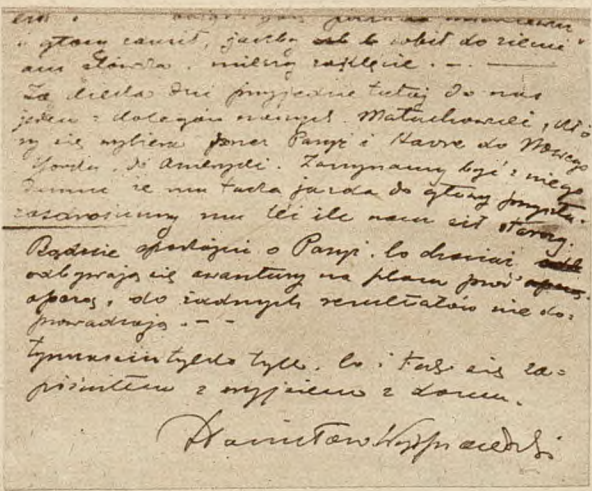 głowy zawrót, jakby do ziemi
ani słówka, milczy zaklęcie. . —
Za kilka dni przyjedzie tutaj do nas
jeden z kolegów naszych Matuchowski, któ
ry się wybiera przez Paryż i Havre do Nowego
Yorku, do Ameryki. Zaczynamy być z niego
dumni że mu taka jazda do głowy przyszła.
zazdrościmy mu ile nam sił starczy.
Bądźcie spokojni o Paryż. bo chociaż
odbywają się awantury na placu przed operą
operą, do żadnych rezultatów nie do=
prowadzają. — —
tymczasem tylko tyle. bo i tak się za=
późniłem z wyjściem z domu.
Stanisław Wyspiański